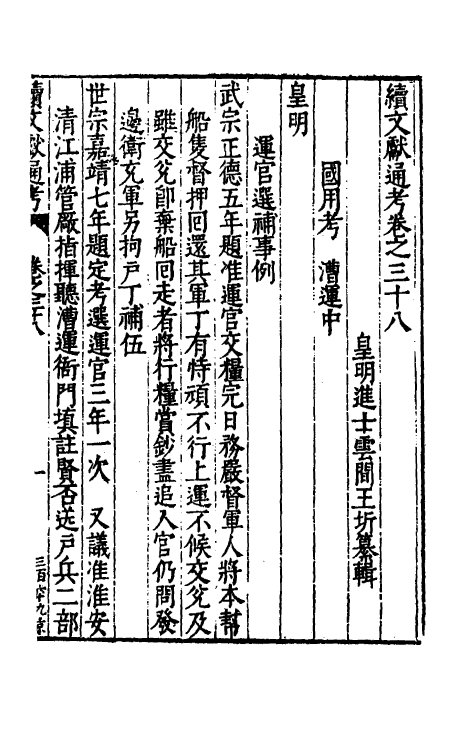 續文獻通考卷之三十八
皇明進士雲間王圻纂輯
國用考 漕運中
皇明
運官選補事例
武宗正德五年題准運官交糧完日務嚴督軍人將本幫
船隻督押囘還其軍丁有恃頑不行上運不候交兊及
雖交兊卽棄船囘走者將行糧賞鈔盡追入官仍問發
邊衛充軍另拘戸丁補伍
世宗嘉靖七年題定考選運官三年一次 又議准淮安
清江浦管厰指揮聽漕運衙門填註賢否送戸兵二部
續文獻通考 卷之三十八 一